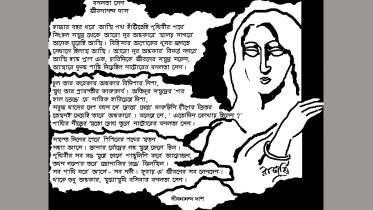 বনলতা সেন
জীবনানন্দ দাশ
হাজার বছর ধরে আমি পথ হাঁটিতেছি পৃথিবীর পথে
সিংহল সমুদ্র থেকে আরো দূর অন্ধকারে মালয় সাগরে
অনেক ঘুরেছি আমি। বিম্বিসার অশোকের ধূসর জগতে
সেখানে ছিলাম আমি। আরো দূর অন্ধকার বিদর্ভ নগরে
আমি ক্লান্ত প্রাণ এক, চারিদিকে জীবনের সমুদ্র সফেন,
আমারে দুদণ্ড শান্তি দিয়েছিল নাটোরের বনলতা সেন।
চুল তার কবেকার অন্ধকার বিদিশার দিশা,
মুখ তার শ্রাবস্তীর কারুকার্য। অতিদূর সমুদ্রের 'পর
হাল ভেঙে যে নাবিক হারায়েছে দিশা,
সবুজ ঘাসের দেশ যখন সে চোখে দেখে দারুচিনি দ্বীপের ভিতর
তেমনই দেখেছি তারে অন্ধকারে। বলেছে সে, 'এতোদিন কোথায় ছিলেন?'
পাখির নীড়ের মতো চোখ তুলে নাটোরের বনলতা সেন।
সমস্ত দিনের শেষে শিশিরের শব্দের মতন
সন্ধ্যা আসে। ডানার রৌদ্রের গন্ধ মুছে ফেলে চিল।
পৃথিবীর সব রঙ মুছে গেলে পাণ্ডুলিপি করে আয়োজন,
তখন গল্পের তরে জোনাকির রঙে ঝিলমিল।
সব পাখি ঘরে আসে- সব নদী। ফুরায় এ জীবনের সব লেনদেন।
থাকে শুধু অন্ধকার, মুখোমুখি বসিবার বনলতা সেন।
জীবনানন্দ দাশ